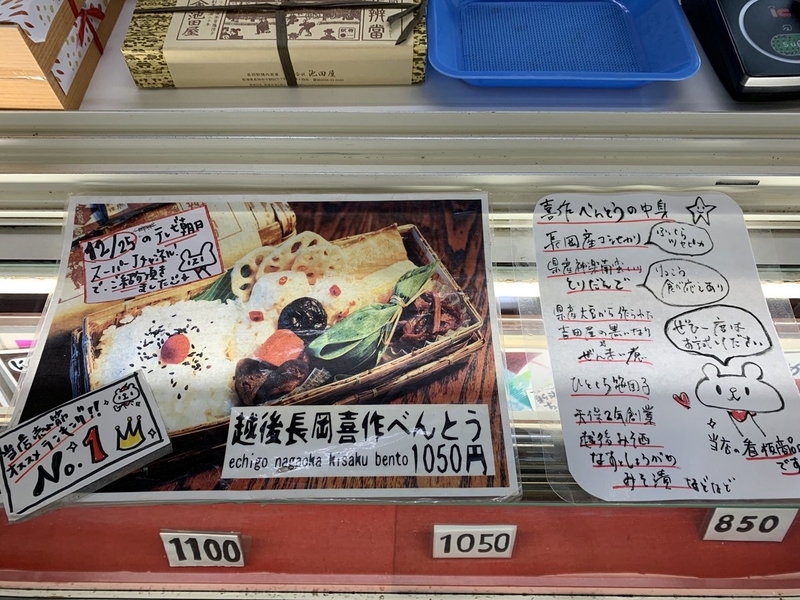 辨當
池田屋
池田屋
12/25のテレビ朝日
スーパーJチャンネル
でご紹介頂き
ましたじょ
当店売れ筋
オススメランキング!!
No.1
越後長岡喜作べんとう
echigo nagaoka kisaku bento
1050円
喜作べんとうの中身
長岡産コシヒカリ
ふっくら
ツヤピカ
とりだんご
食べ応えあり
県産大豆から作られた
ぜんまい煮
ぜひ一度は
お試しください
ひとくち笹団子
天保2年創業
越後みそ西
なす、しょうがの
みそ漬 などなど
当店の看板商品
です
1100
1050
850